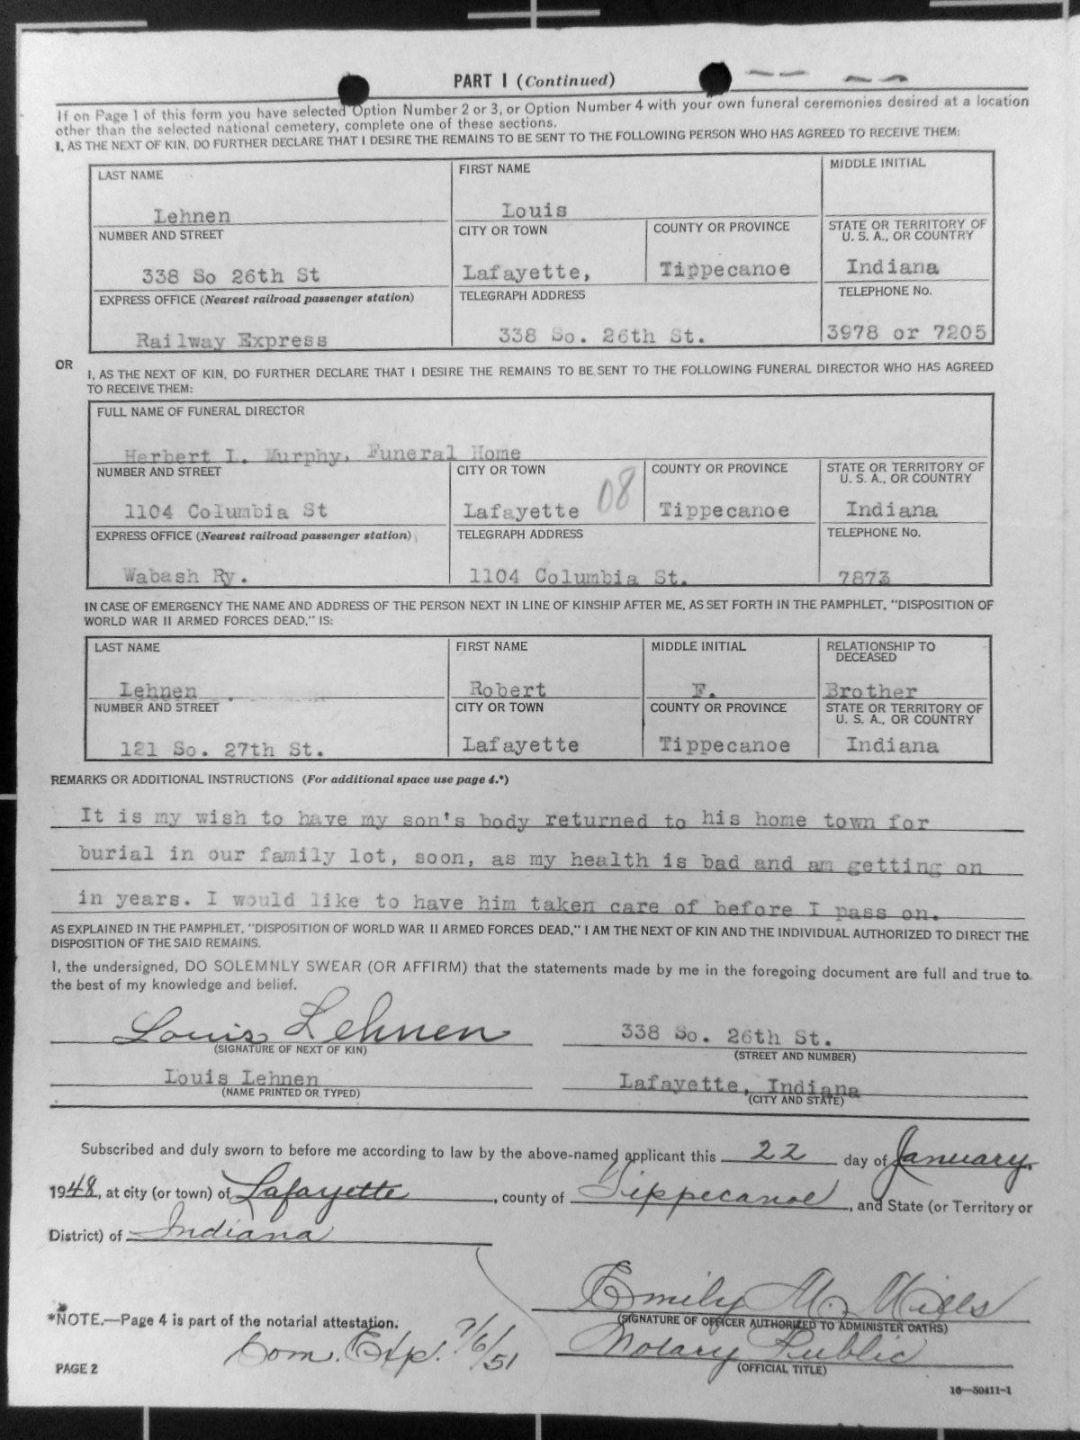 PART I (Continued)
If on Page 1 of this form you have selected Option Number 2 or 3, or Option Number 4 with your own funeral ceremonies desired at a location
other than the selected national cemetery, complete one of these sections.
I, AS THE NEXT OF KIN, DO FURTHER DECLARE THAT I DESIRE THE REMAINS TO BE SENT TO THE FOLLOWING PERSON WHO HAS AGREED TO RECEIVE THEM:
LAST NAME FIRST NAME MIDDLE INITIAL
Lehnen Louis
NUMBER AND STREET CITY OR TOWN COUNTY OR PROVINCE STATE OR TERRITORY OF
U. S. A., OR COUNTRY
338 So 26th St Lafayette, Tippecanoe Indiana
EXPRESS OFFICE (Nearest railroad passenger station) TELEGRAPH ADDRESS TELEPHONE No.
Railway Express 338 So. 26th St. 3978 or 7205
OR I, AS THE NEXT OF KIN, DO FURTHER DECLARE THAT I DESIRE THE REMAINS TO BE SENT TO THE FOLLOWING FUNERAL DIRECTOR WHO HAS AGREED
TO RECEIVE THEM:
FULL NAME OF FUNERAL DIRECTOR
Herbert L. Murphy, Funeral Home
NUMBER AND STREET CITY OR TOWN COUNTY OR PROVINCE STATE OR TERRITORY OF
U. S. A., OR COUNTRY
1104 Columbia St Lafayette 08 Tippecanoe Indiana
EXPRESS OFFICE (Nearest railroad passenger station) TELEGRAPH ADDRESS TELEPHONE No.
Wabash Ry. 1104 Columbia St. 7873
IN CASE OF EMERGENCY THE NAME AND ADDRESS OF THE PERSON NEXT IN LINE OF KINSHIP AFTER ME, AS SET FORTH IN THE PAMPHLET, "DISPOSITION OF
WORLD WAR II ARMED FORCES DEAD," IS:
LAST NAME FIRST NAME MIDDLE INITIAL RELATIONSHIP TO
DECEASED
Lehnen Robert F. Brother
NUMBER AND STREET CITY OR TOWN COUNTY OR PROVINCE STATE OR TERRITORY OF
U. S. A., OR COUNTRY
121 So. 27th St. Lafayette Tippecanoe Indiana
REMARKS OR ADDITIONAL INSTRUCTIONS (For additional space use page 4.*)
It is my wish to have my son's body returned to his home town for
burial in our family lot, soon, as my health is bad and am getting on
in years. I would like to have him taken care of before I pass on.
AS EXPLAINED IN THE PAMPHLET, "DISPOSITION OF WORLD WAR II ARMED FORCES DEAD," I AM THE NEXT OF KIN AND THE INDIVIDUAL AUTHORIZED TO DIRECT THE
DISPOSITION OF THE SAID REMAINS.
I, the undersigned, DO SOLEMNLY SWEAR (OR AFFIRM) that the statements made by me in the foregoing document are full and true to
the best of my knowledge and belief.
Louis Lehnen 338 So. 26th St.
(SIGNATURE OF NEXT OF KIN) (STREET AND NUMBER)
Louis Lehnen Lafayette, Indiana
(NAME PRINTED OR TYPED) (CITY AND STATE)
Subscribed and duly sworn to before me according to law by the above-named applicant this 22 day of January,
1948, at city (or town) of Lafayette, county of Tippecanoe, and State (or Territory or
District) of Indiana
Emily M. Mills
(SIGNATURE OF OFFICER AUTHORIZED TO ADMINISTER OATHS)
*NOTE.—Page 4 is part of the notarial attestation.
Com. Exp. 7/6/51 Notary Public
(OFFICIAL TITLE)
PAGE 2
16—50411-1